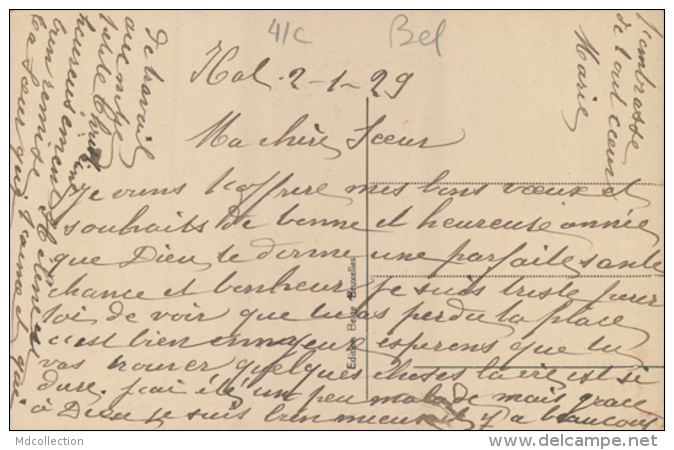 41c
Bel
Hal. 2-1-29
Ma chère Sœur
Je viens t'offrire mes bons vœux et
souhaits de bonne et heureuse année
que Dieu te donne une parfaite sante
chance et bonheur je suis triste pour
toi de voir que tu as perdu la place
c'est bien ennuyeux esperons que tu
vas trouver quelques choses la vie est si
dure. j'ai été un peu malade mais grace
à Dieu je suis bien mieux il y a beaucoup
de travail
heureusement
remise
ta Sœur qui t'aime et qui
t'embrasse
de tout cœur
Marie
Edition Belge Bruxelles
Mdcollection
delcampe.net